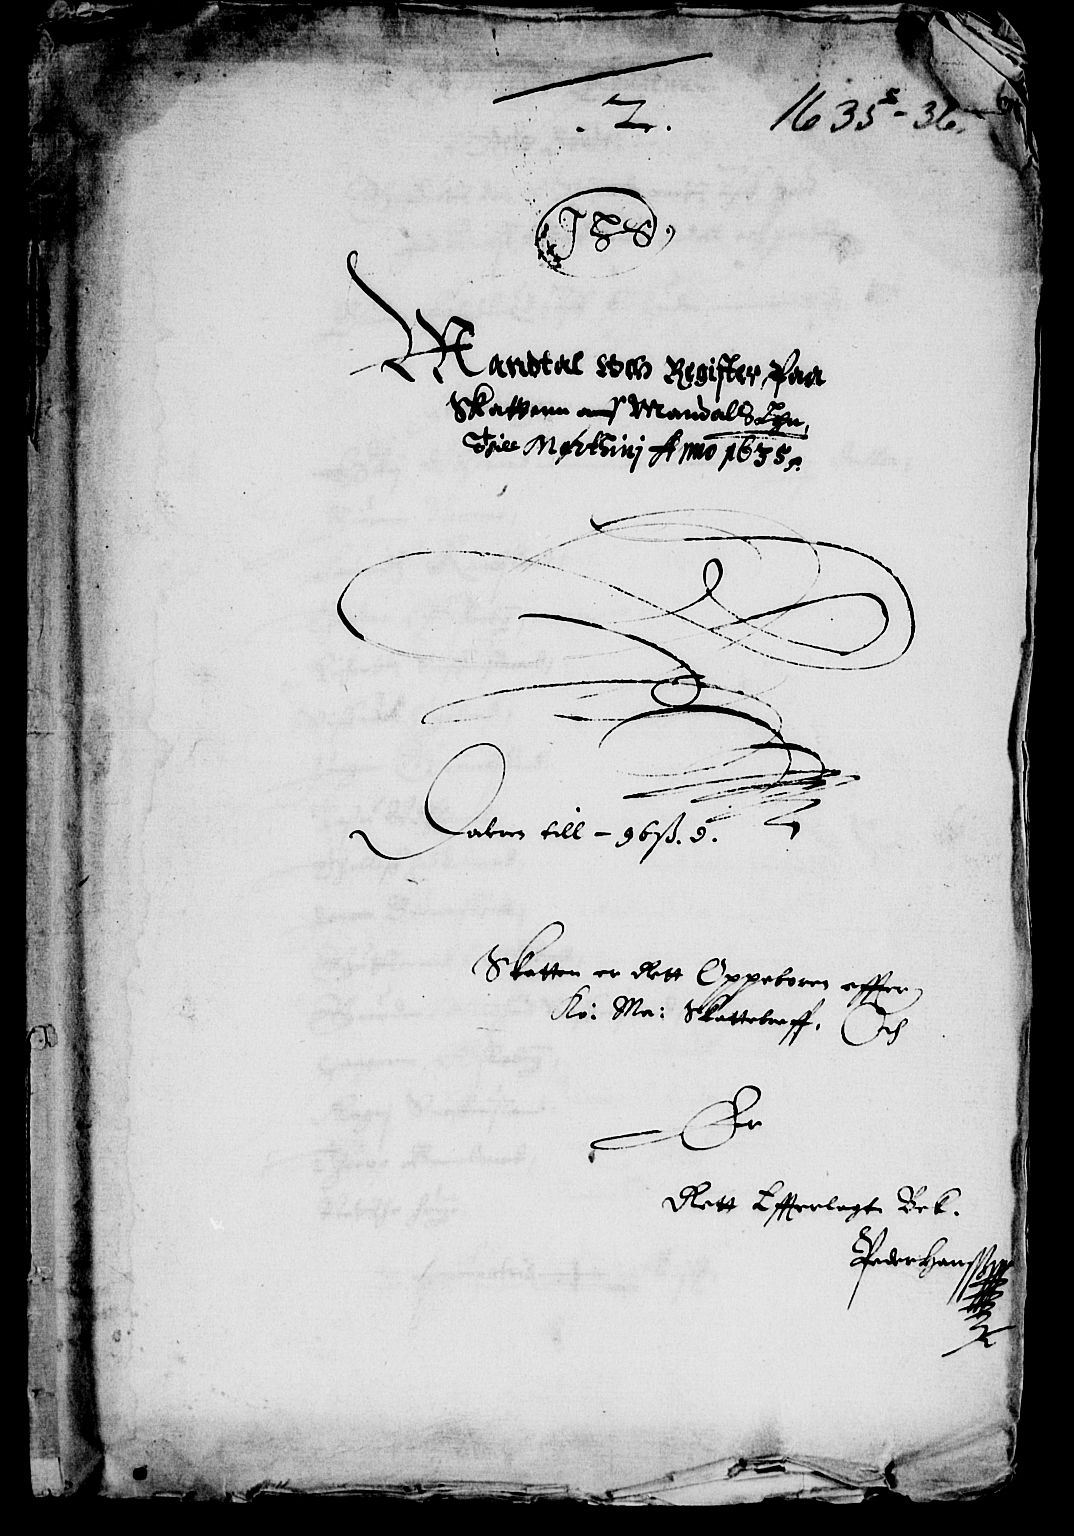 . 2.
1635-36.
188,
Mandtal och Register Paa
Skatten aff Mandals Lhn,
Till Morthinj Anno 1635.
till - 96 ß. 9.
Skatten er Rett Oppeboren effter
Kö: Ma: Skattebreff, Och
Er
Rett Efferlagt. Bek.
Peder Hanss